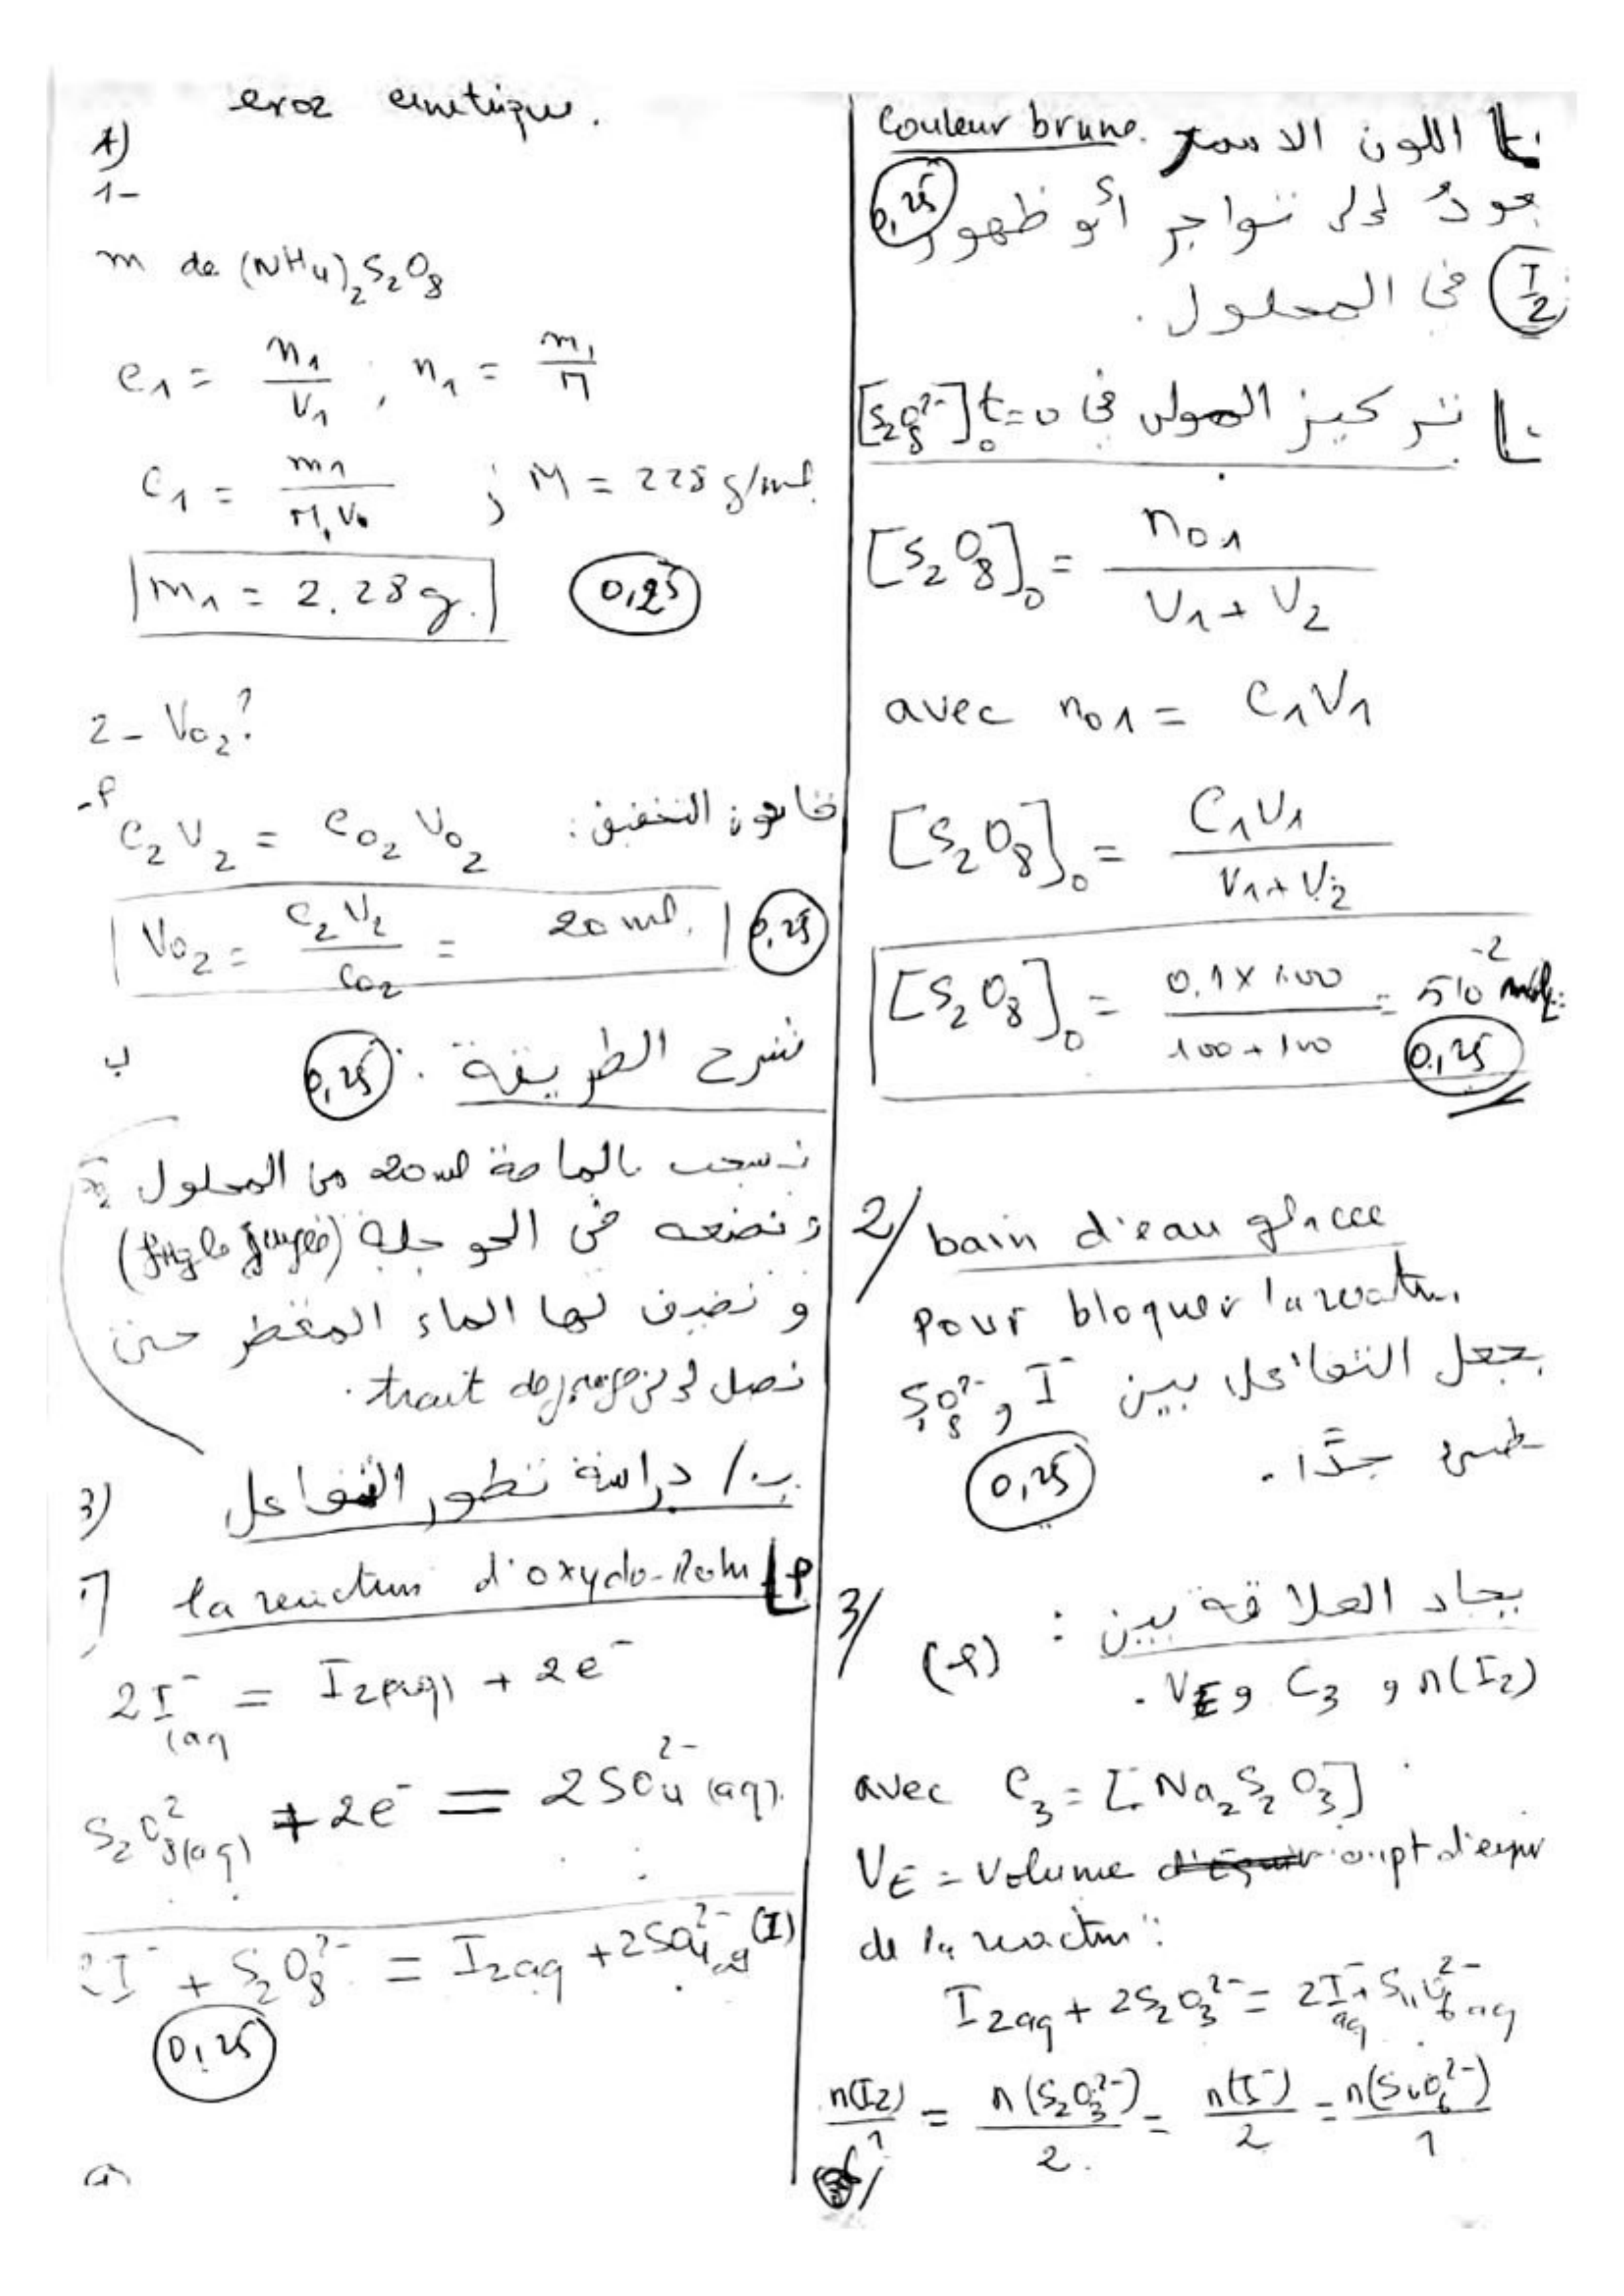 exo2 cinetique.
A)
1-
m de (NH4)2S2O8
C1 = n1/V1 ; n1 = m1/M
C1 = m1/M.V1 ; M = 228 g/mol.
m1 = 2.28 g. 0,25
2- V02?
أ- C2V2 = C02V02 قانون التخفيف:
V02 = C2V2/C02 = 20 ml. 0,25
ب شرح الطريقة: 0,25
نسحب بالماصة 20 ml من المحلول
ونضعه في الحوجلة (fiole jaugée)
و نضيف لها الماء المقطر حتى
نصل إلى trait de jauge.
3) ب/ دراسة تطور التفاعل
1) la reaction d'oxydo-Redu أ
2I-(aq = I2(aq) + 2e-
S2O8 2(aq) + 2e- = 2SO4 2-(aq).
2I- + S2O8 2- = I2aq + 2SO4 2-aq (I)
0,25
Couleur brune. اللون الاسمر
يعود إلى تواجد أو ظهور 0,25
I2 في المحلول.
تركيز المولي في t=0 [S2O8 2-]0
[S2O8]0 = n01/V1+V2
avec n01 = C1V1
[S2O8]0 = C1V1/V1+V2
[S2O8]0 = 0.1×100/100+100 = 5 10-2 mol/l
0,25
2/ bain d'eau glacee
pour bloquer la reaction.
يجعل التفاعل بين I- و S2O8 2-
جدًا.
0,25
3/ يجاد العلاقة بين :
(أ) n(I2) و C3 و VE.
avec C3 = [Na2S2O3]
VE = volume au pt d'equi
de la reaction:
I2aq + 2S2O3 2- = 2I-aq + S4O6 2-aq
n(I2)/1 = n(S2O3 2-)/2 = n(I-)/2 = n(S4O6 2-)/1